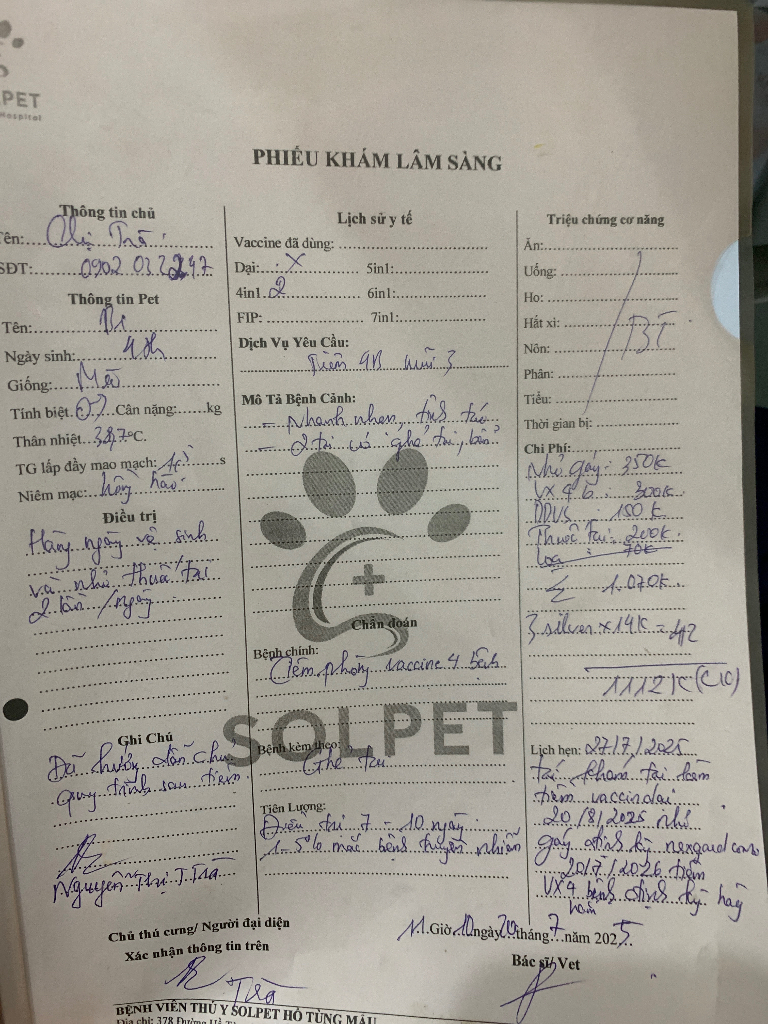 LPET
Hospital
PHIẾU KHÁM LÂM SÀNG
Thông tin chủ
Tên: Chị Trà
SĐT:
Thông tin Pet
Tên: Bi
Ngày sinh:
Giống: Mèo
Tính biệt. Cân nặng:......kg
Thân nhiệt °C.
TG lấp đầy mao mạch: s
Niêm mạc: hồng hào
Điều trị
Hàng ngày vệ sinh
và nhỏ thuốc tai
2 lần / ngày
Ghi Chú
Đã hướng dẫn chủ
quy trình sau tiêm
Nguyễn Thị T. Trà
Chủ thú cưng/ Người đại diện
Xác nhận thông tin trên
Trà
Lịch sử y tế
Vaccine đã dùng:
Dại: X 5in1:
4in1 2 6in1:
FIP: 7in1:
Dịch Vụ Yêu Cầu:
Tiêm 4B mũi 3
Mô Tả Bệnh Cảnh:
- Nhanh nhẹn, tỉnh táo
- 2 tai có ghẻ tai, bẩn
Chẩn đoán
Bệnh chính:
Tiêm phòng vaccine 4 bệnh
Bệnh kèm theo:
Ghẻ tai
Tiên Lượng:
Điều trị 7 - 10 ngày
1 - 5% mắc bệnh truyền nhiễm
SOLPET
Triệu chứng cơ năng
Ăn:
Uống:
Ho:
Hắt xì: BT
Nôn:
Phân:
Tiểu:
Thời gian bị:
Chi Phí:
Nhỏ gáy: 350K
VX 4 b : 300K
: 150 K
Thuốc tai: 200K
Loa : 70K
Σ 1.070K
3 silver x 14K = 42
1112K (CK)
Lịch hẹn: 27/7/2025
tái khám tai kèm
tiêm vaccin dại
20/8/2025 nhỏ
gáy định kỳ nexgard combo
20/7/2026 tiêm
VX 4 bệnh định kỳ hàng
năm
11 Giờ 10 ngày 20 tháng 7 năm 2025
Bác sĩ/ Vet
BỆNH VIỆN THÚ Y SOLPET HỒ TÙNG MẬU
Địa chỉ: 378 Đường Hồ